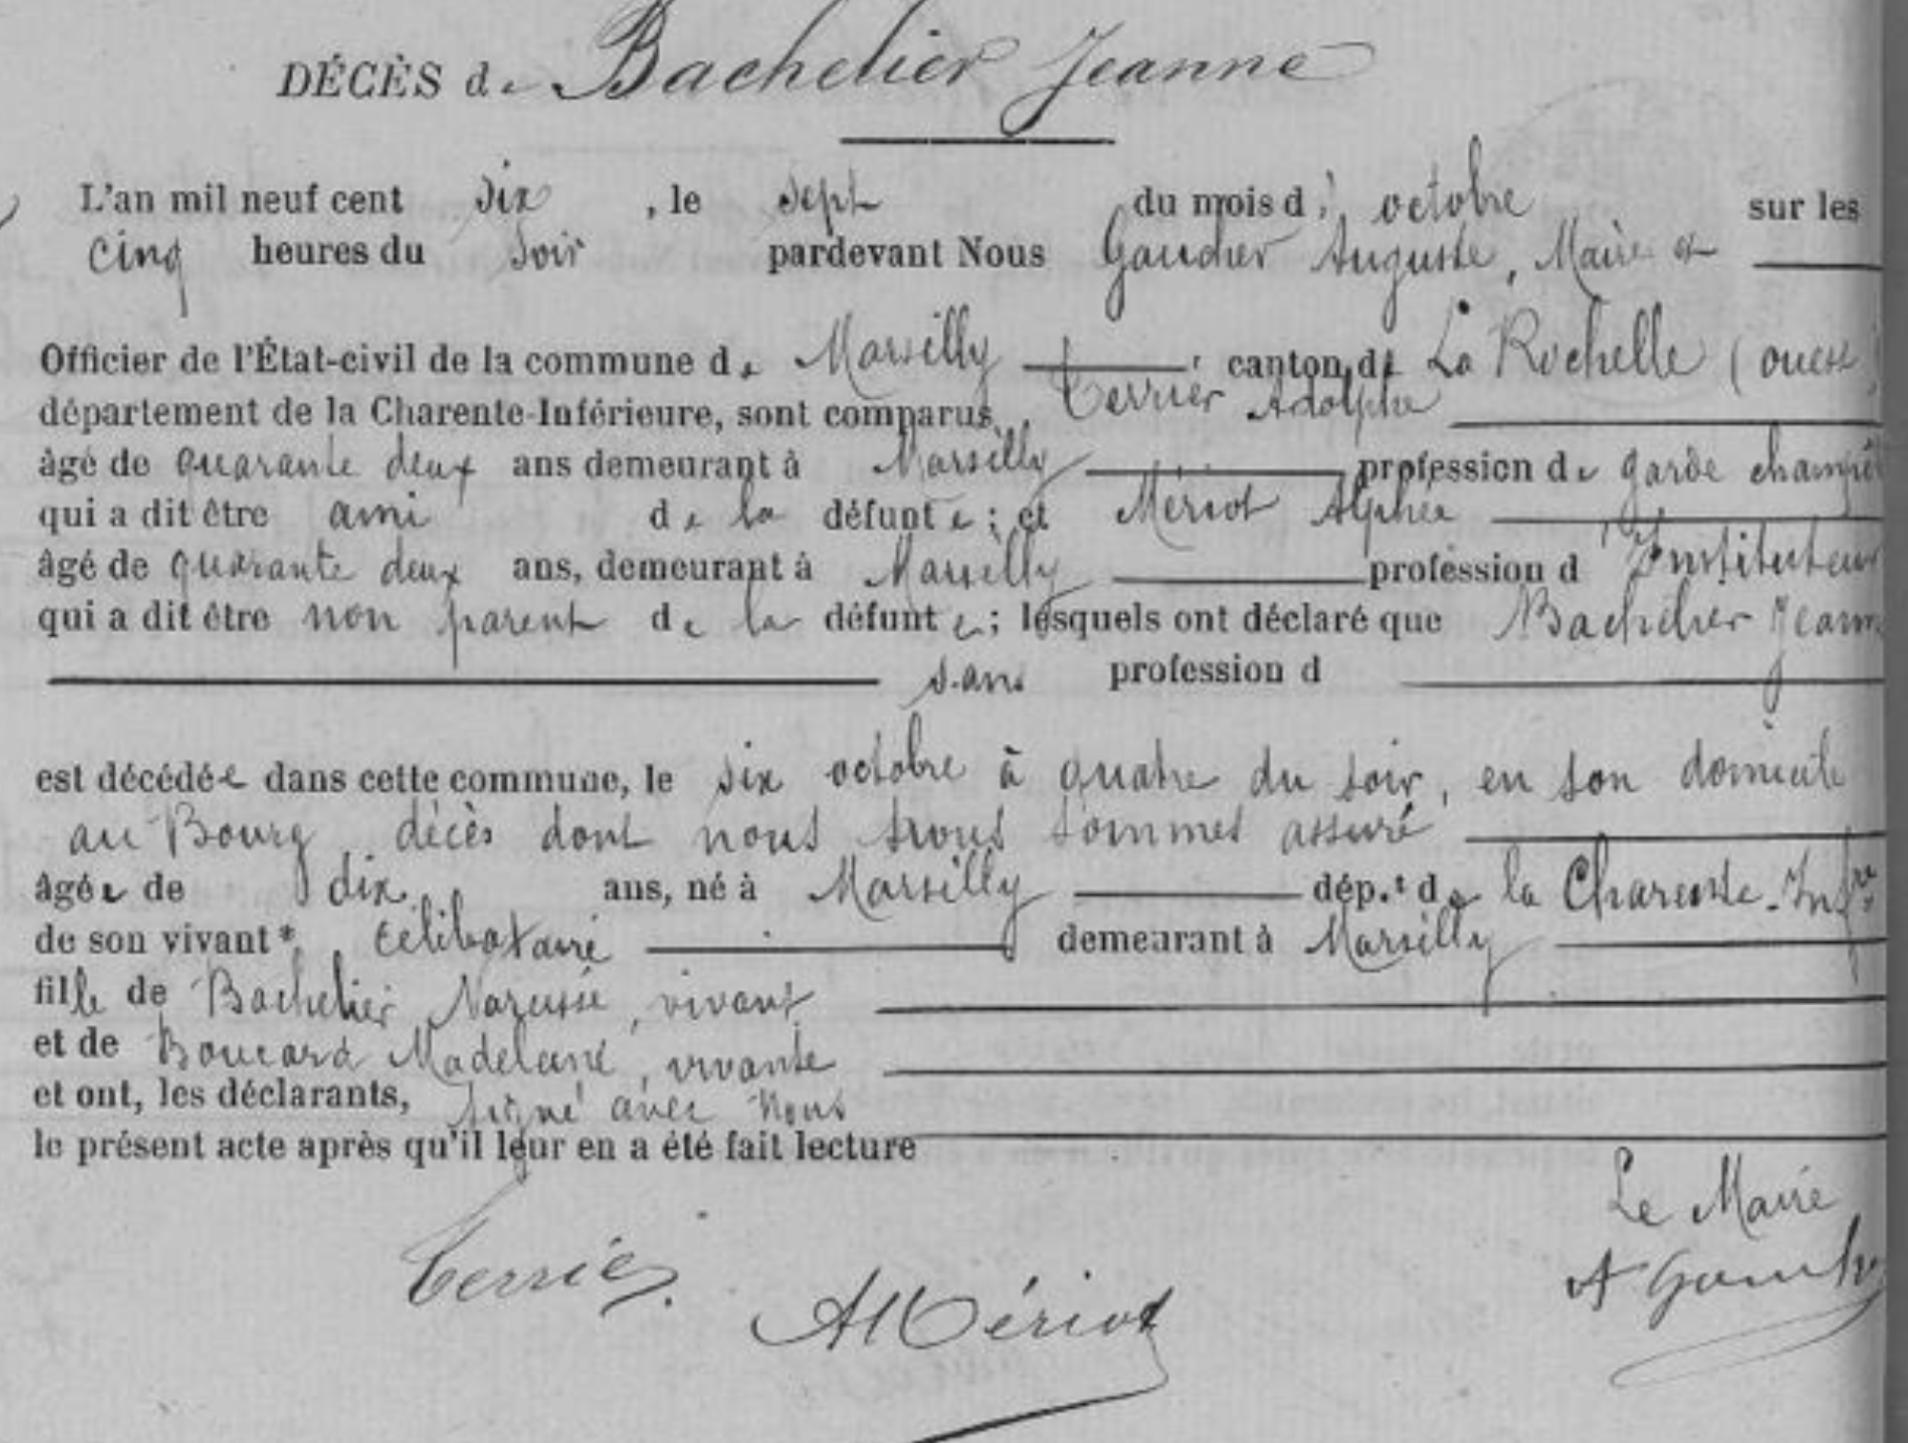 DÉCÈS de Bachelier Jeanne
L'an mil neuf cent six, le sept du mois d' octobre sur les
cinq heures du soir pardevant Nous Gaucher Auguste, Maire et
Officier de l'État-civil de la commune de Marsilly canton de La Rochelle (ouest)
département de la Charente-Inférieure, sont comparus Terrier Adolphe
âgé de quarante deux ans demeurant à Marsilly profession de garde champêt
qui a dit être ami de la défunte; et Mériot Alphée
âgé de quarante deux ans, demeurant à Marsilly profession d'Instituteur
qui a dit être non parent de la défunte; lesquels ont déclaré que Bachelier Jeanne
sans profession d
est décédée dans cette commune, le six octobre à quatre du soir, en son domicile
au Bourg, décès dont nous nous sommes assuré
âgée de dix ans, né à Marsilly dép.t de la Charente-Infre
de son vivant* célibataire demeurant à Marsilly
fille de Bachelier Narcisse, vivant
et de Boucard Madeleine, vivante
et ont, les déclarants, signé avec Nous
le présent acte après qu'il leur en a été fait lecture
Le Maire
Terrier
A Mériot
A Gaucher